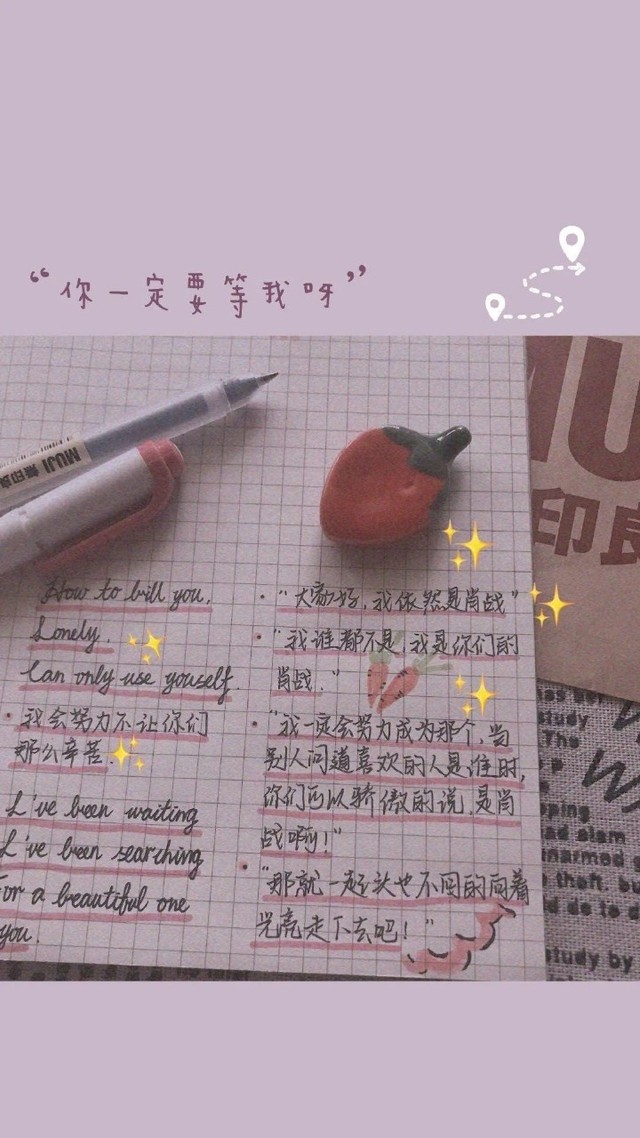 “你一定要等我呀”
MUJI 無印良品
MU
印良
How to bill you.
Lonely.
Can only use youself.
· 我会努力不让你们
那么辛苦.
I've been waiting
I've been searching
For a beautiful one
you.
· “大家好,我依然是肖战”
· “我谁都不是,我是你们的
肖战.”
· “我一定会努力成为那个,当
别人问道喜欢的人是谁时,
你们可以骄傲的说,是肖
战啊!”
· “那就一起头也不回的向着
光亮走下去吧!”
study
The
ping
ad slam
narmed
theft, but
ld do to
study by